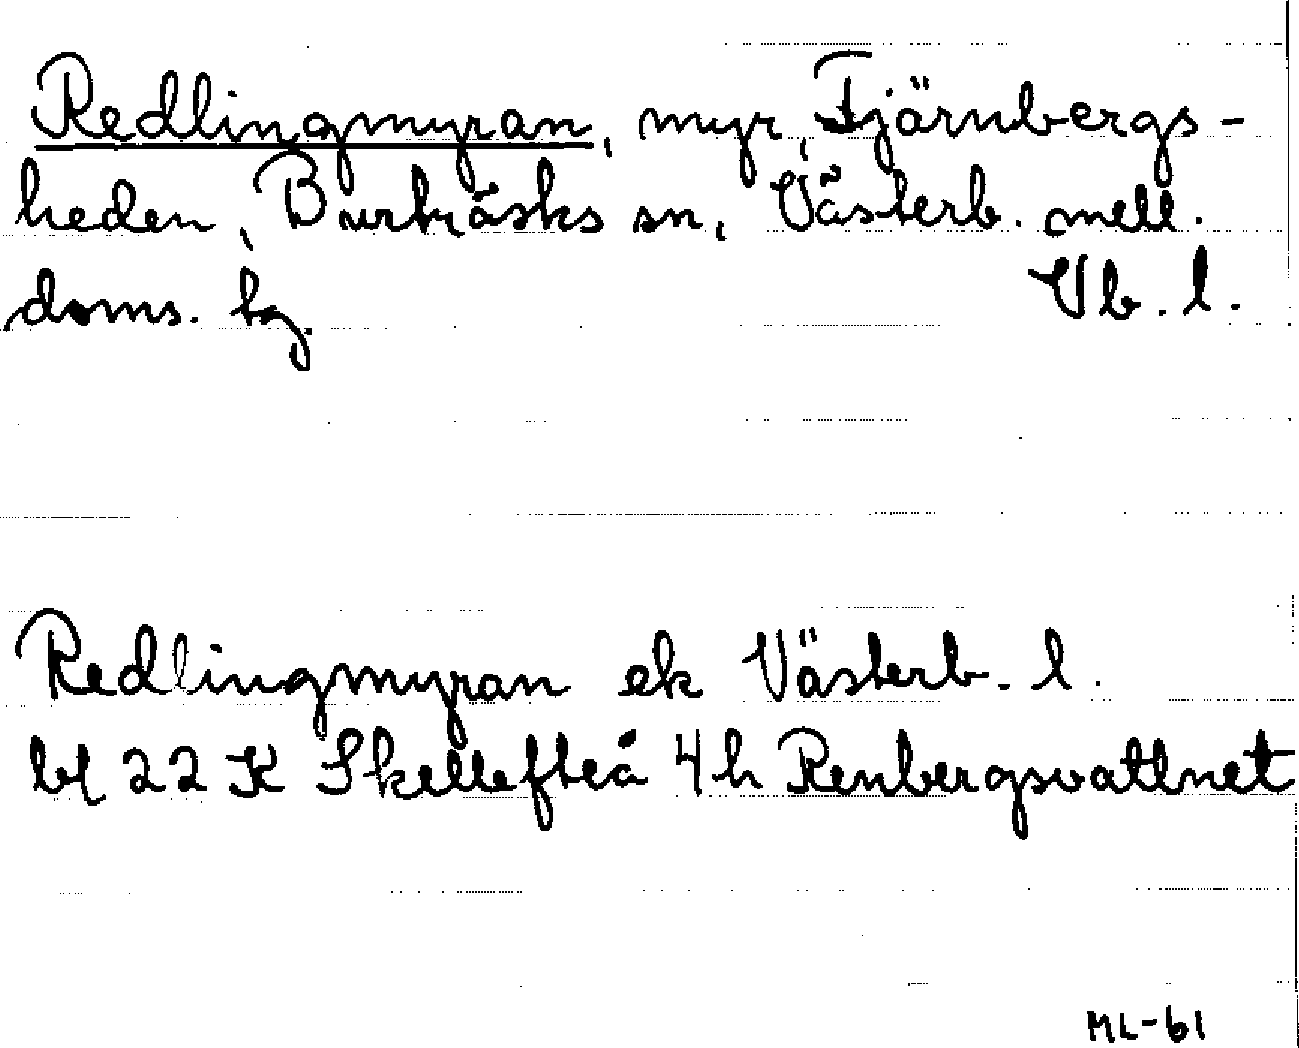 Redlingmyran, myr, Tjärnbergs-
heden, Burträsks sn, Västerb. mell.
doms. tg. Vb. l.
Redlingmyran ek Västerb. l.
bl 22 K Skellefteå 4h Renbergsvattnet
ML-61